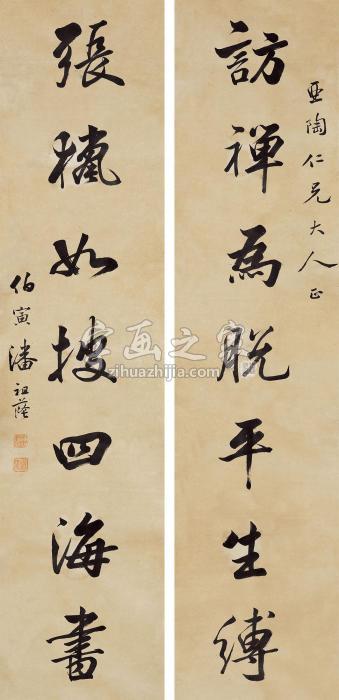 亞陶仁兄大人正
訪禪為脫平生縛
張如搜四海書
伯寅潘祖蔭
字画之家
zihuazhijia.com